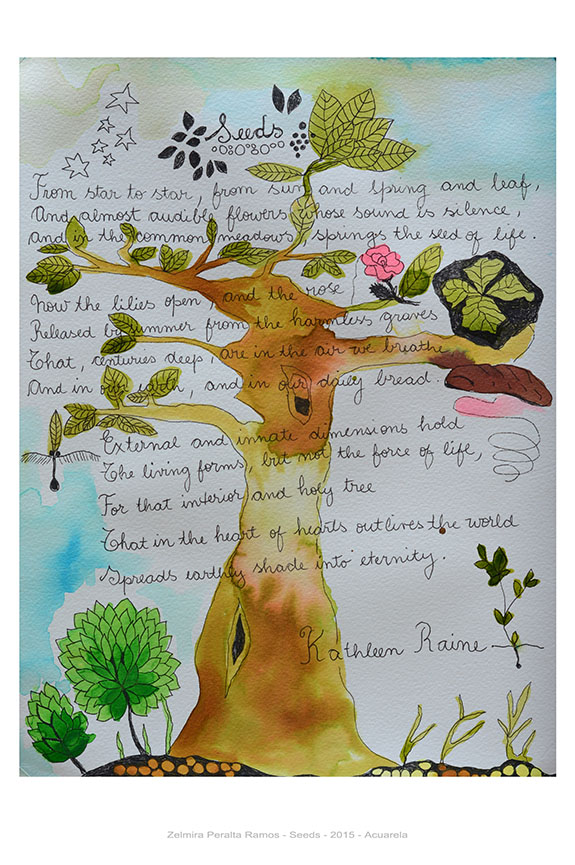 Seeds
From star to star, from sun and spring and leaf,
And almost audible flowers whose sound is silence,
and in the common meadows, springs the seed of life.
Now the lilies open, and the rose
Released by summer from the harmless graves
That, centuries deep, are in the air we breathe
And in our earth, and in our daily bread.
External and innate dimensions hold
The living forms, but not the force of life,
For that interior and holy tree
That in the heart of hearts outlives the world
Spreads earthly shade into eternity.
Kathleen Raine
Zelmira Peralta Ramos - Seeds - 2015 - Acuarela